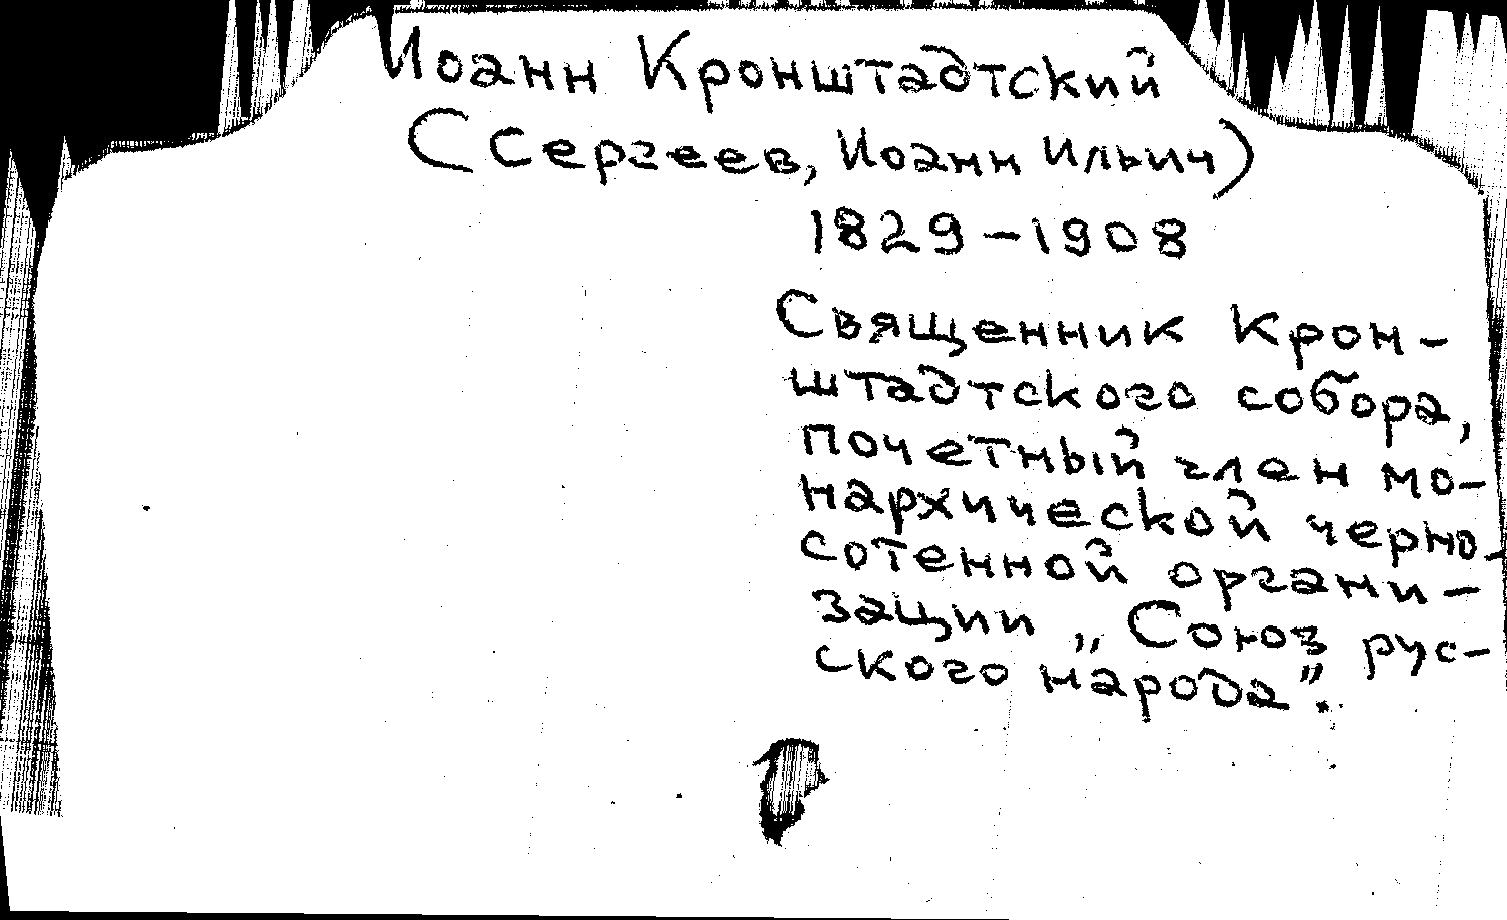 Иоанн Кронштадтский
(Сергеев, Иоанн Ильич)
1829–1908
Священник Крон-
штадтского собора,
почетный член мо-
нархической черно-
сотенной органи-
зации „Союз рус-
ского народа”.